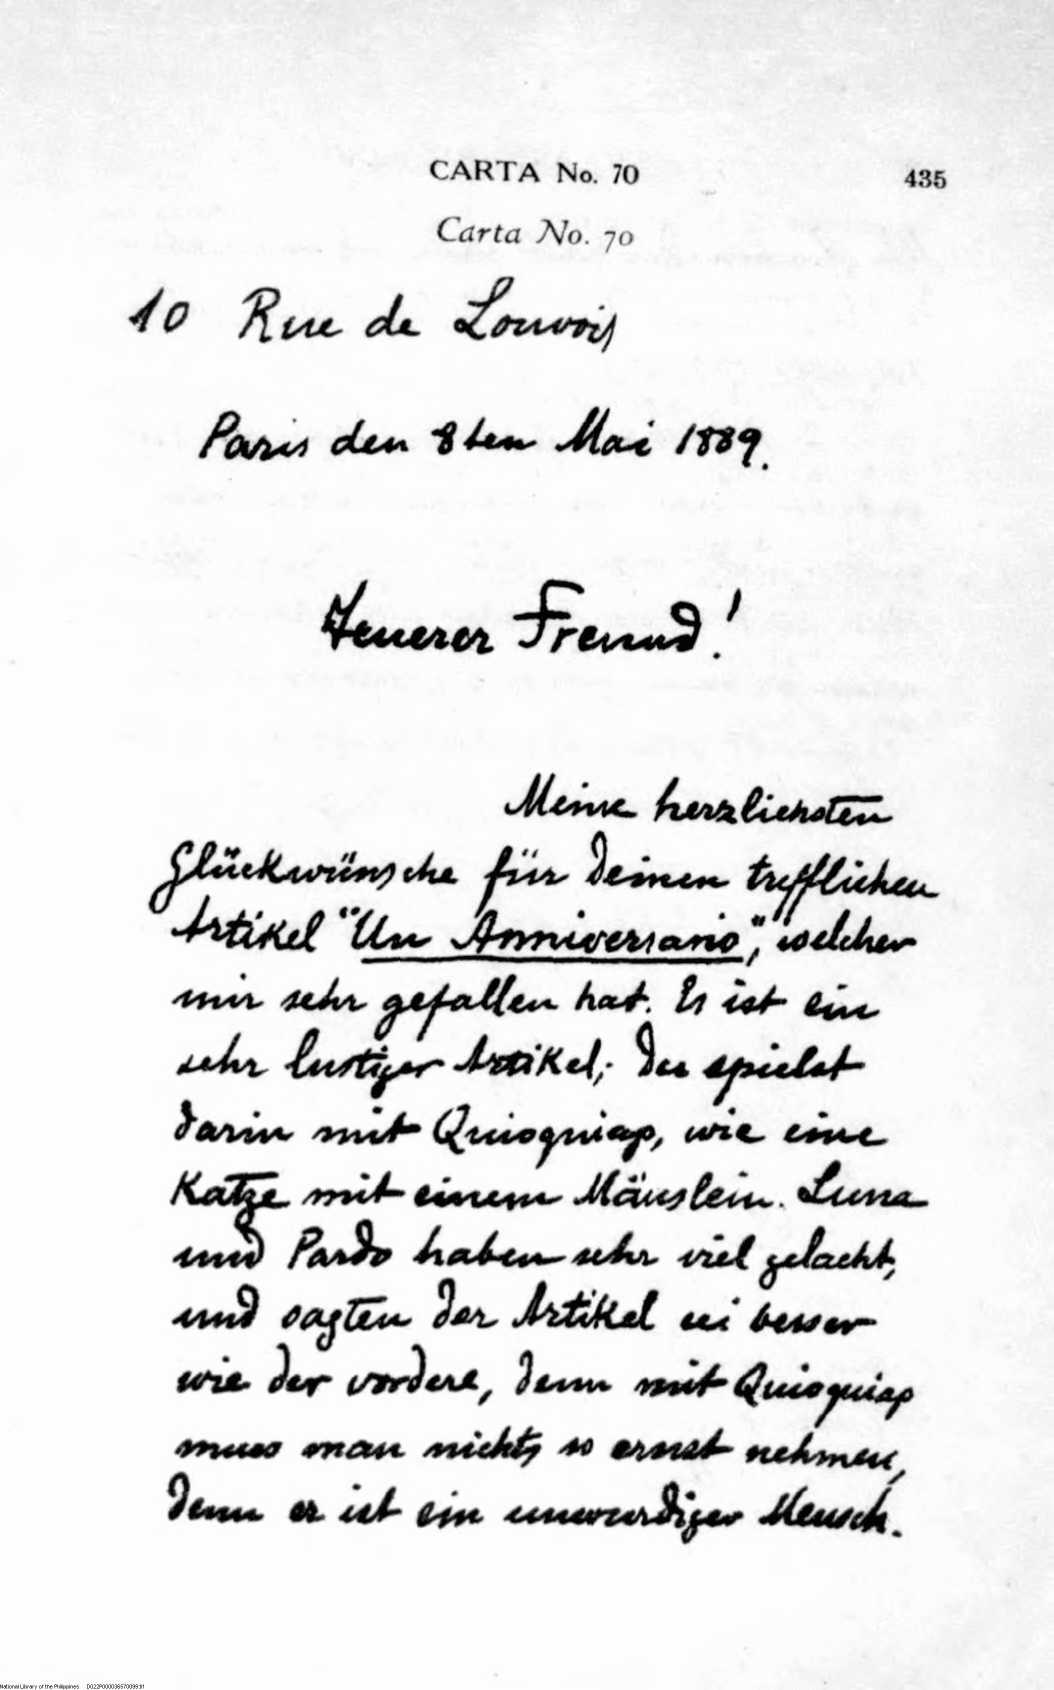 CARTA No. 70 435
Carta No. 70
10 Rue de Louvois
Paris den 8ten Mai 1889.
Teuerer Freund!
Meine herzlichsten
Glückwünsche für Deinen trefflichen
Artikel "Un Anniversario", welcher
mir sehr gefallen hat. Es ist ein
sehr lustiger Artikel; Du spielst
darin mit Quioquiap, wie eine
Katze mit einem Mäuslein. Luna
und Pardo haben sehr viel gelacht,
und sagten der Artikel sei besser
wie der vordere, denn mit Quioquiap
muss man nichts so ernst nehmen,
denn er ist ein unwurdiger Mensch.
National Library of the Philippines